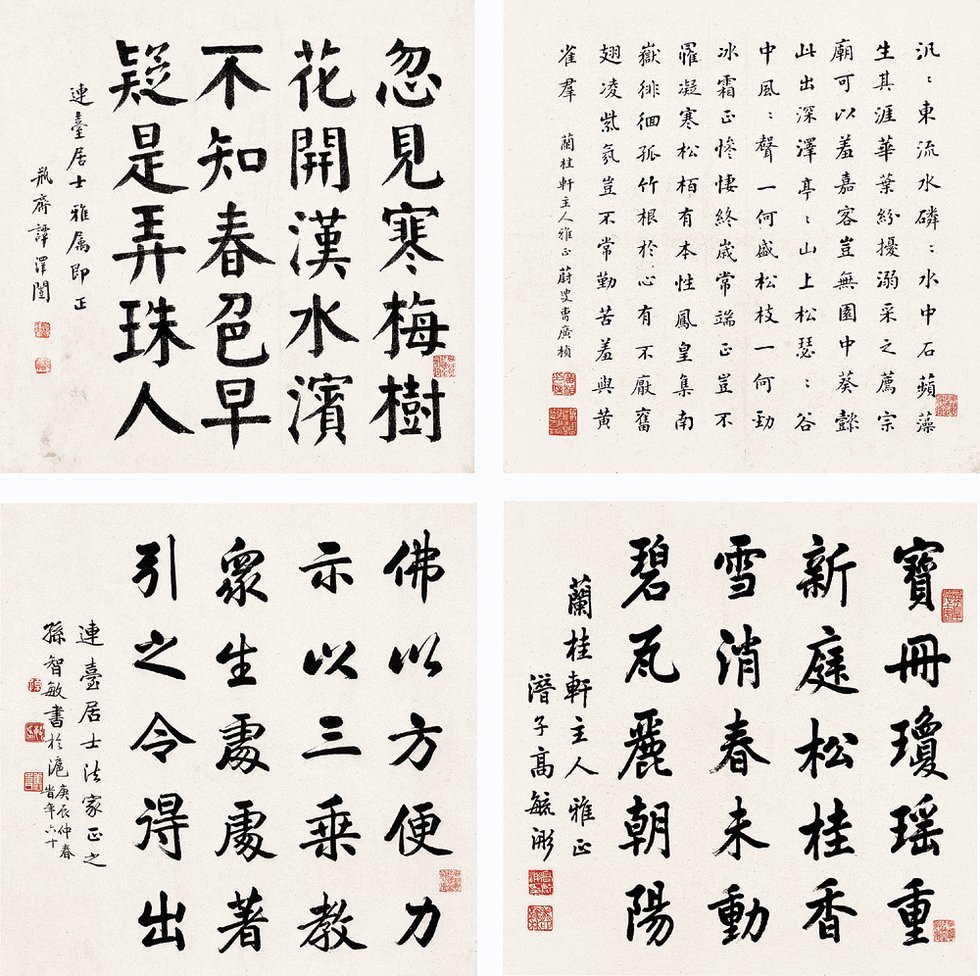 忽見寒梅樹
花開漢水濱
不知春色早
疑是弄珠人
連臺居士雅属即正
瓶齋譚澤闓
汎〻東流水磷〻水中石蘋藻
生其涯華葉紛擾溺采之薦宗
廟可以羞嘉客豈無園中葵懿
此出深澤亭〻山上松瑟〻谷
中風〻聲一何盛松枝一何勁
冰霜正慘悽終歲常端正豈不
罹凝寒松栢有本性鳳皇集南
嶽徘徊孤竹根於心有不厭奮
翅凌紫氛豈不常勤苦羞與黃
雀群
蘭桂軒主人雅正蔚叟曹廣楨
佛以方便力
示以三乘教
衆生處處著
引之令得出
連臺居士法家正之
孫智敏書於滬
庚辰仲春
旹年六十
寶冊瓊瑤重
新庭松桂香
雪消春未動
碧瓦麗朝陽
蘭桂軒主人雅正
潛子高毓浵